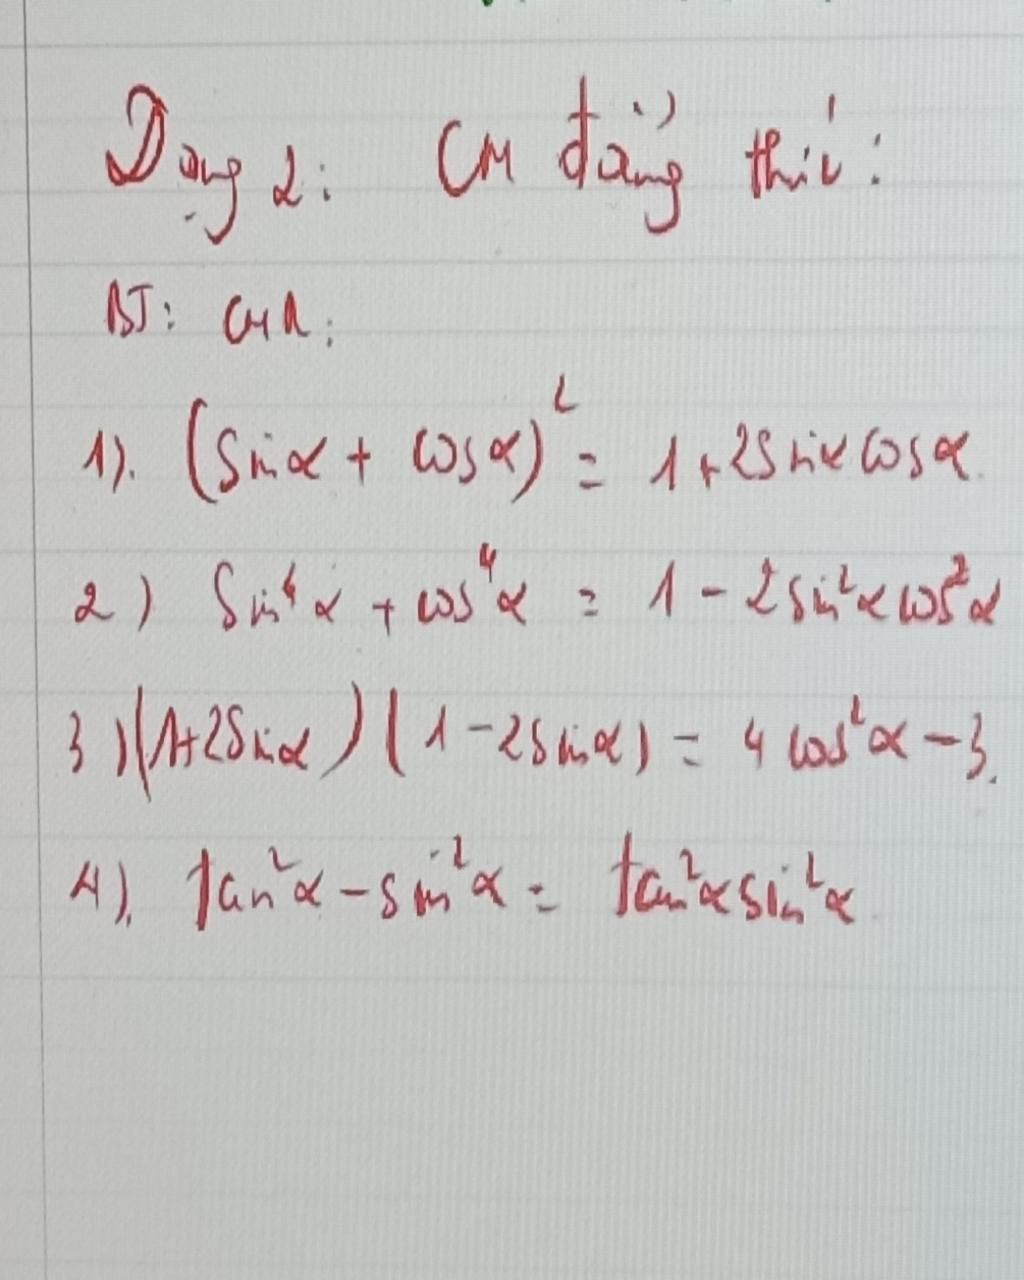 Dạng 2: CM đẳng thức:
BT: CMR:
1). (Sinα + cosα)² = 1 + 2Sinα Cosα.
2) Sin⁴α + cos⁴α = 1 - 2 sin²α cos²α
3) (1+2Sinα) (1 - 2sinα) = 4 cos²α - 3.
4). tan²α - sin²α = tan²α sin²α